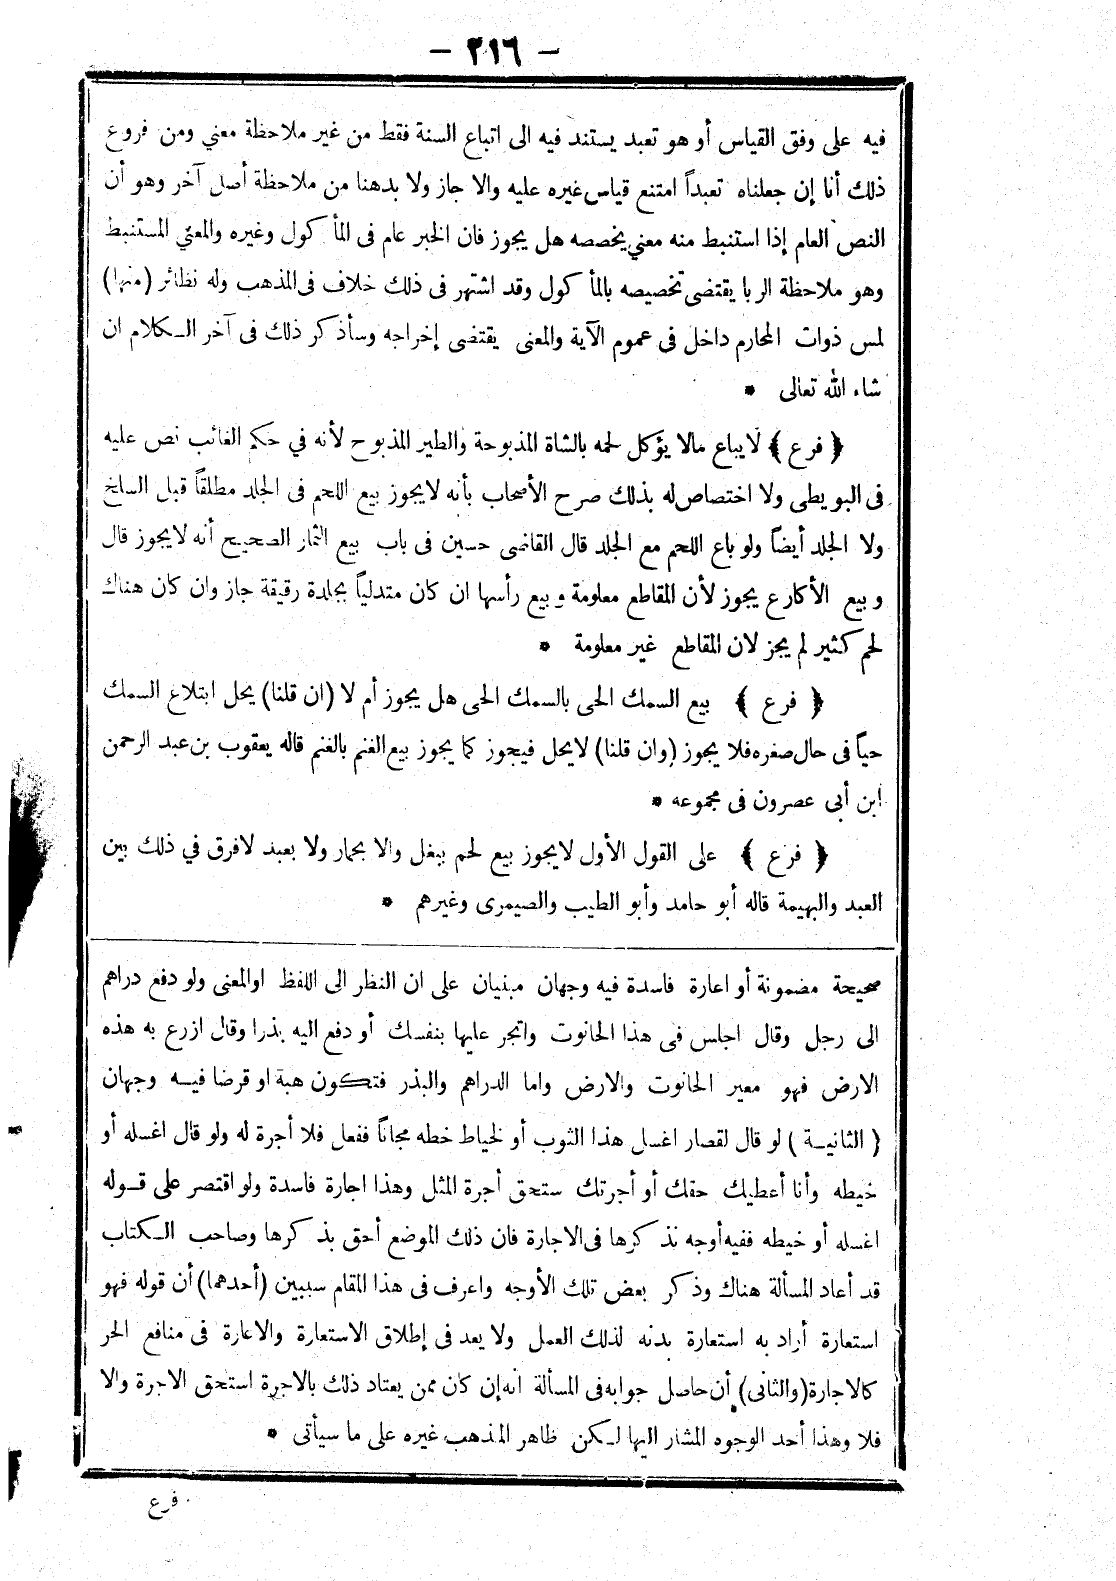 — ٢١٦ —
فيه على وفق القياس أو هو تعبد يستند فيه الى اتباع السنة فقط من غير ملاحظة معني ومن فروع
ذلك أنا إن جعلناه تعبداً امتنع قياس غيره عليه والا جاز ولا بدهنا من ملاحظة أصل آخر وهو أن
النص العام إذا استنبط منه معني يخصصه هل يجوز فان الخبر عام فى المأكول وغيره والمعني المستنبط
وهو ملاحظة الربا يقتضى تخصيصه بالمأكول وقد اشتهر فى ذلك خلاف فى المذهب وله نظائر (منها)
لمس ذوات المحارم داخل فى عموم الآية والمعنى يقتضى إخراجه وسأذكر ذلك فى آخر الكلام ان
شاء الله تعالى *
﴿ فرع ﴾ لايباع مالا يؤكل لحمه بالشاة المذبوحة والطير المذبوح لأنه في حكم الغائب نص عليه
فى البويطى ولا اختصاص له بذلك صرح الأصحاب بأنه لايجوز بيع اللحم فى الجلد مطلقاً قبل السلخ
ولا الجلد أيضاً ولو باع اللحم مع الجلد قال القاضى حسين فى باب بيع الثمار الصحيح أنه لايجوز قال
وبيع الأكارع يجوز لأن المقاطع معلومة وبيع رأسها ان كان متدلياً بجلدة رقيقة جاز وان كان هناك
لحم كثير لم يجز لان المقاطع غير معلومة *
﴿ فرع ﴾ بيع السمك الحى بالسمك الحى هل يجوز أم لا (ان قلنا) يحل ابتلاع السمك
حياً فى حال صغره فلا يجوز (وان قلنا) لايحل فيجوز كما يجوز بيع الغنم بالغنم قاله يعقوب بن عبد الرحمن
ابن أبى عصرون فى مجموعه *
﴿ فرع ﴾ على القول الأول لايجوز بيع لحم ببغل والا بحمار ولا بعبد لافرق في ذلك بين
العبد والبهيمة قاله أبو حامد وأبو الطيب والصيمرى وغيرهم *
صحيحة مضمونة أو اعارة فاسدة فيه وجهان مبنيان على ان النظر الى اللفظ اوالمعنى ولو دفع دراهم
الى رجل وقال اجلس فى هذا الحانوت واتجر عليها بنفسك أو دفع اليه بذرا وقال ازرع به هذه
الارض فهو معير الحانوت والارض واما الدراهم والبذر فتكون هبة او قرضا فيه وجهان
( الثانية ) لو قال لقصار اغسل هذا الثوب أو لخياط خطه مجاناً ففعل فلا أجرة له ولو قال اغسله أو
خيطه وأنا أعطيك حقك أو أجرتك ستحق أجرة المثل وهذا اجارة فاسدة ولو اقتصر على قوله
اغسله أو خيطه ففيه أوجه نذكرها فى الاجارة فان ذلك الموضع أحق بذكرها وصاحب الكتاب
قد أعاد المسألة هناك وذكر بعض تلك الأوجه واعرف فى هذا المقام سببين (أحدهما) أن قوله فهو
استعارة أراد به استعارة بدنه لذلك العمل ولا يعد فى إطلاق الاستعارة والاعارة فى منافع الحر
كالاجارة (والثانى) أن حاصل جوابه فى المسألة انه إن كان ممن يعتاد ذلك بالاجرة استحق الاجرة والا
فلا وهذا أحد الوجوه المشار اليها لكن ظاهر المذهب غيره على ما سيأتى *
فرع